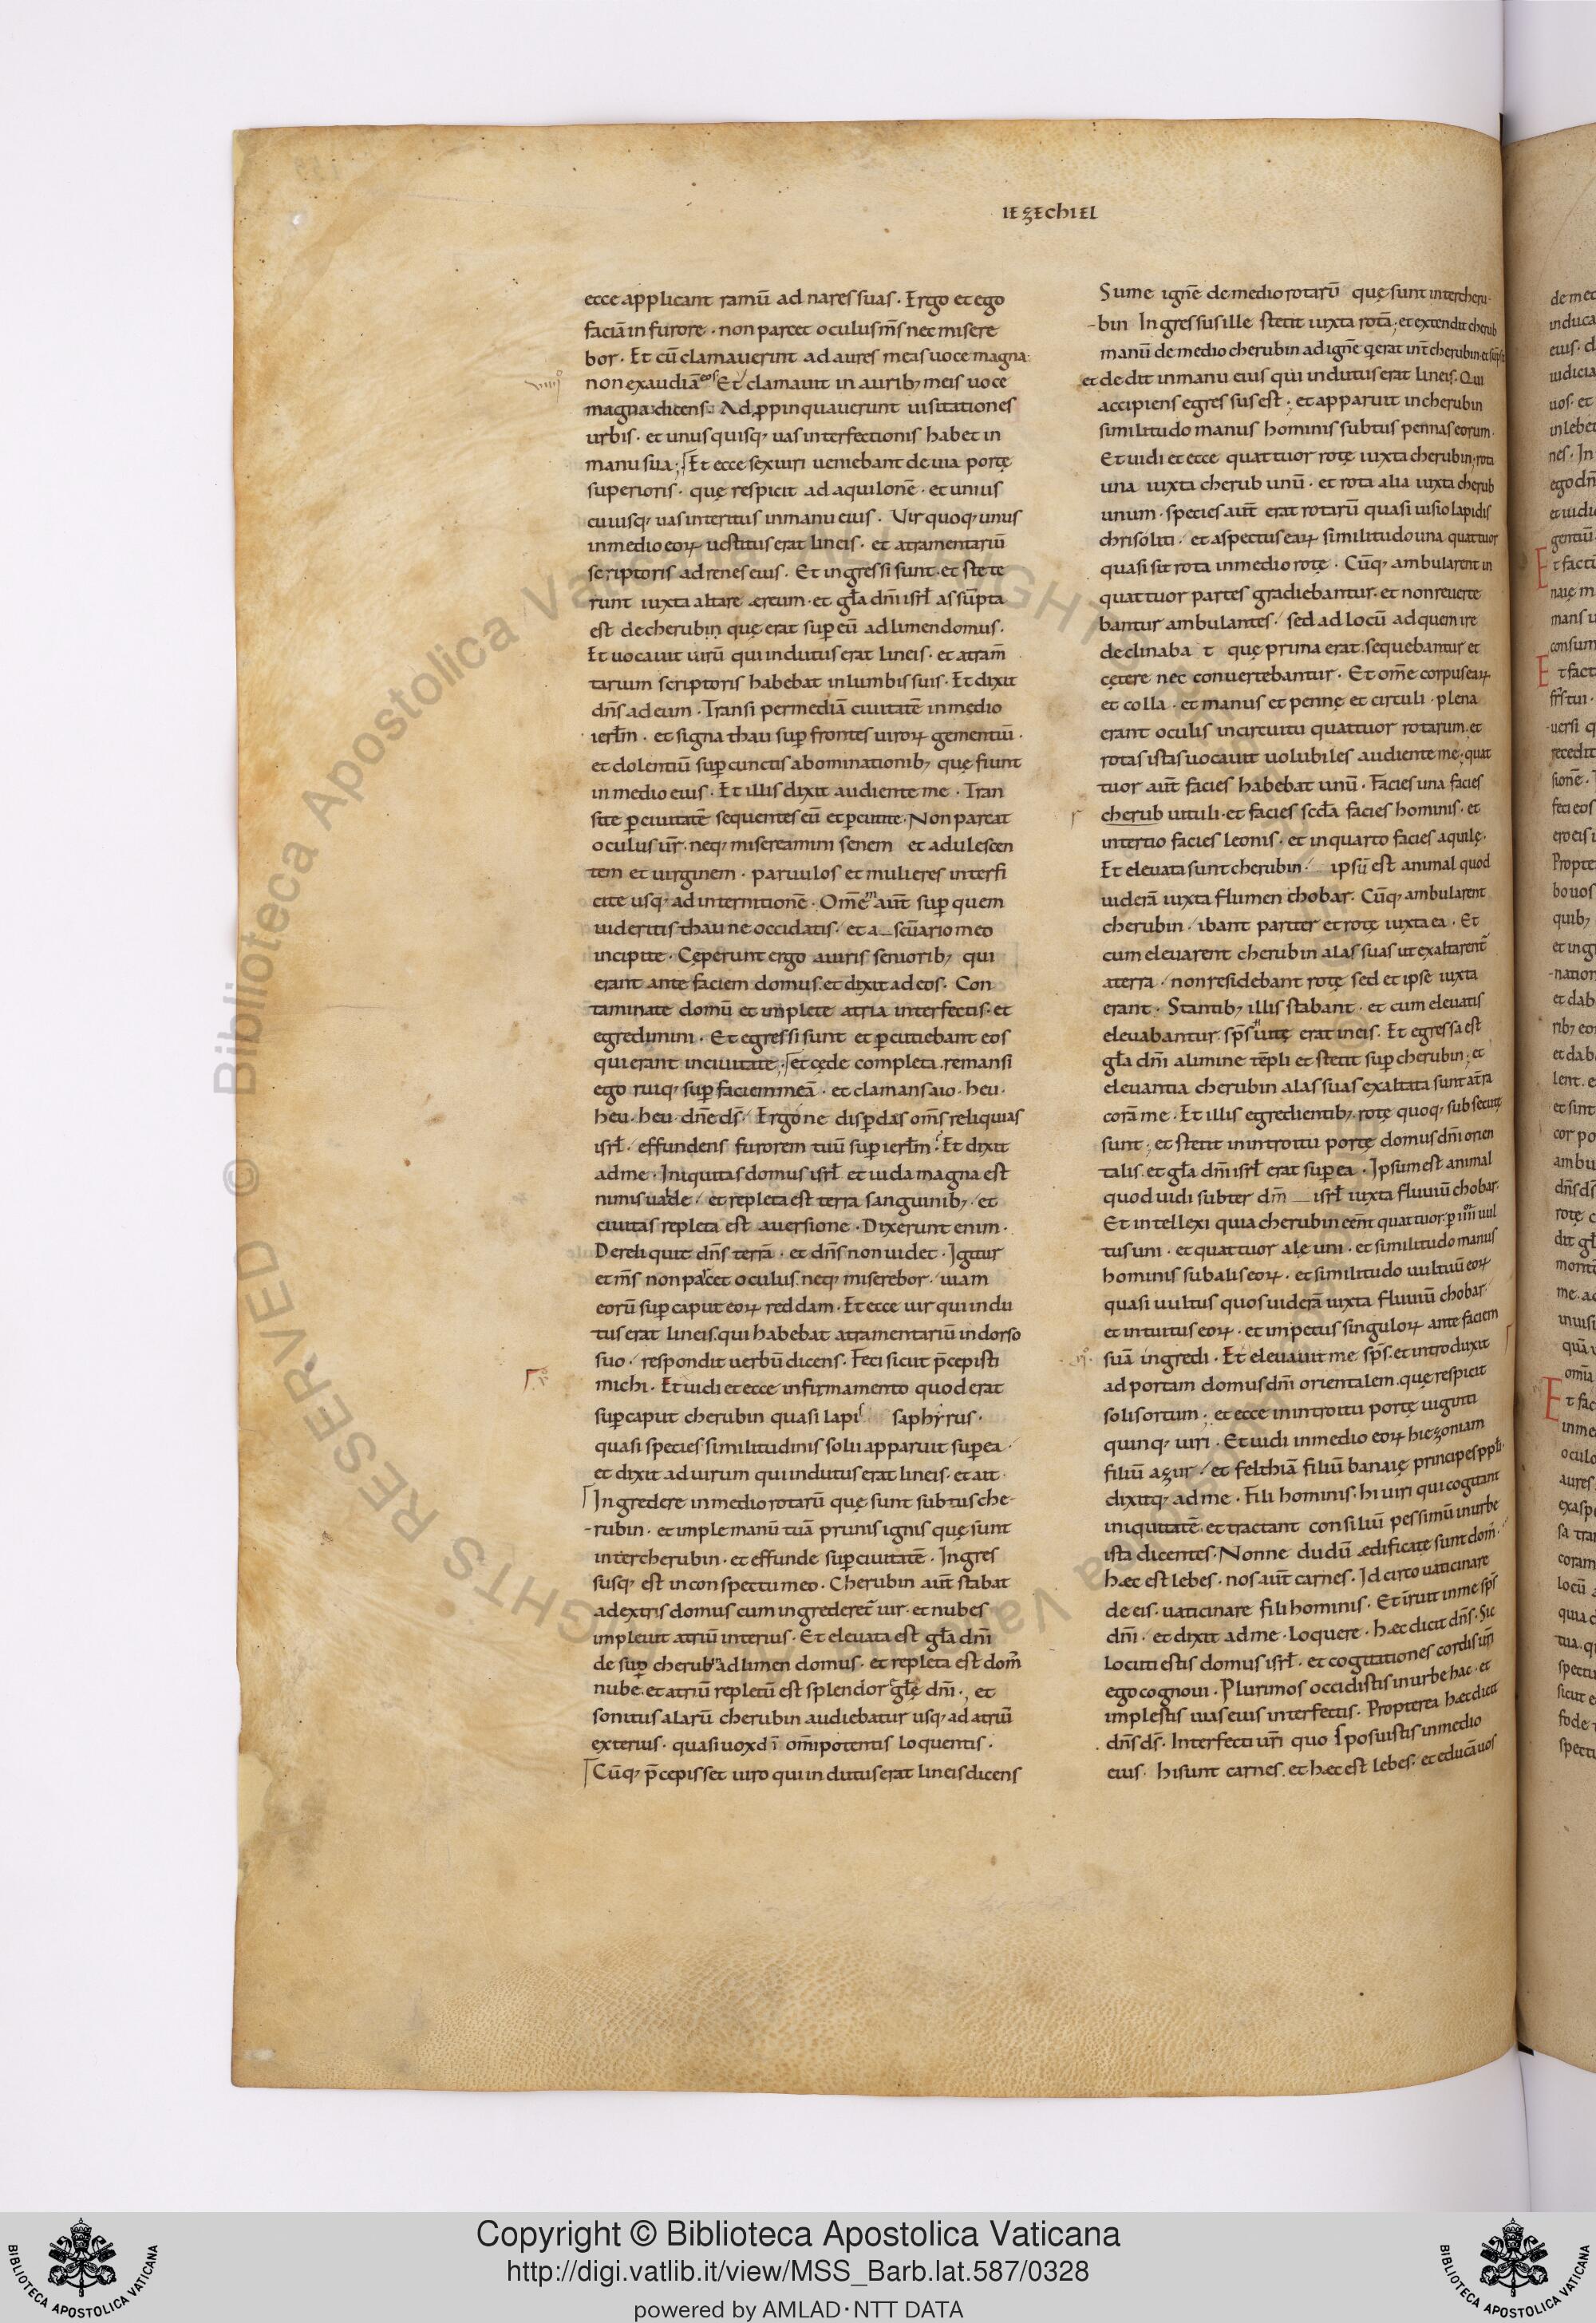 IEZECHIEL
ecce applicant ramū ad nares suas. Ergo et ego
faciā in furore. non parcet oculus m̄s nec misere
bor. Et cū clamauerint ad aures meas uoce magna.
non exaudiā eos. Et clamauit in aurib; meis uoce
magna dicens. Adp̱pinquauerunt uisitationes
urbis. et unusquisq; uas interfectionis habet in
manu sua; Et ecce sex uiri ueniebant de uia portę
superioris. quę respicit ad aquilonē. et unius
cuiusq; uas interitus in manu eius. Vir quoq; unus
in medio eoꝝ uestitus erat lineis. et atramentariū
scriptoris ad renes eius. Et ingressi sunt. et stete
runt iuxta altare ęreum. et gła dn̄i isrł assūpta
est de cherubin quę erat sup̱ eū ad limen domus.
Et uocauit uirū qui indutus erat lineis. et atram̄
tarium scriptoris habebat in lumbis suis. Et dixit
dn̄s ad eum. Transi per mediā ciuitatē in medio
ierłm. et signa thau sup̱ frontes uiroꝝ gementiū.
et dolentiū sup̱ cunctis abominationib; quę fiunt
in medio eius. Et illis dixit audiente me. Tran
site p̱ ciuitatē sequentes eū et p̱cutite. Non parcat
oculus ur̄. neq; misereamini senem et adulescen
tem et uirginem. paruulos et mulieres interfi
cite usq; ad internitionē. Omēm aut̄ sup̱ quem
uideritis thau ne occidatis. et a scūario meo
incipite. Cęperunt ergo a uiris seniorib; qui
erant ante faciem domus. et dixit ad eos. Con
taminate domū et implete atria interfectis. et
egredimini. Et egressi sunt et p̱cutiebant eos
qui erant in ciuitate; et cęde completa. remansi
ego ruiq; sup̱ faciem meā. et clamans aio. heu.
heu. heu. dn̄e ds̄. Ergo ne disp̱das om̄s reliquias
isrł. effundens furorem tuū sup̱ ierłm? Et dixit
ad me. Iniquitas domus isrł et iuda magna est
nimis ualde. et repleta est terra sanguinib;. et
ciuitas repleta est auersione. Dixerunt enim.
Dereliquit dn̄s terrā. et dn̄s non uidet. Igitur
et m̄s non parcet oculus. neq; miserebor. uiam
eorū sup̱ caput eoꝝ reddam. Et ecce uir qui indu
tus erat lineis. qui habebat atramentariū in dorso
suo. respondit uerbū dicens. Feci sicut p̄cepisti
michi. Et uidi et ecce in firmamento quod erat
sup̱ caput cherubin quasi lapis saphyrus.
quasi species similitudinis solii apparuit sup̱ ea.
et dixit ad uirum qui indutus erat lineis. et ait.
Ingredere in medio rotarū quę sunt subtus che-
-rubin. et imple manū tuā prunis ignis quę sunt
inter cherubin. et effunde sup̱ ciuitatē. Ingres
susq; est in conspectu meo. Cherubin aut̄ stabat
a dextris domus cum ingrederet̄ uir. et nubes
impleuit atriū interius. Et eleuata est gła dn̄i
de sup̱ cherubin ad limen domus. et repleta est dom̄
nube. et atriū repletū est splendor głę dn̄i. et
sonitus alarū cherubin audiebatur usq; ad atriū
exterius. quasi uox dī om̄ipotentis loquentis.
Cūq; p̄cepisset uiro qui indutus erat lineis dicens
Sume ignē de medio rotarū quę sunt inter cheru-
-bin Ingressus ille stetit iuxta rotā; et extendit cherub
manū de medio cherubin ad ignē q̄ erat int̄ cherubin. et sūpsit
et dedit in manu eius qui indutus erat lineis. Qui
accipiens egressus est; et apparuit in cherubin
similitudo manus hominis subtus pennas eorum.
Et uidi et ecce quattuor rotę iuxta cherubin; rota
una iuxta cherub unū. et rota alia iuxta cherub
unum. species aut̄ erat rotarū quasi uisio lapidis
chrisoliti. et aspectus eaꝝ similitudo una quattuor
quasi sit rota in medio rotę. Cūq; ambularent in
quattuor partes gradiebantur. et non reuerte
bantur ambulantes. sed ad locū ad quem ire
declinaba t quę prima erat. sequebantur et
cętere nec conuertebantur. Et om̄e corpus eaꝝ
et colla. et manus et pennę et circuli. plena
erant oculis in circuitu quattuor rotarum. et
rotas istas uocauit uolubiles audiente me; quat
tuor aut̄ facies habebat unū. Facies una facies
cherub uituli. et facies scda facies hominis. et
in tertio facies leonis. et in quarto facies aquilę.
Et eleuata sunt cherubin. ipsū est animal quod
uiderā iuxta flumen chobar. Cūq; ambularent
cherubin. ibant pariter et rotę iuxta ea. Et
cum eleuarent cherubin alas suas ut exaltarent̄
a terra. non residebant rotę sed et ipse iuxta
erant. Stantib; illis stabant. et cum eleuatis
eleuabantur. sp̄s uitę erat in eis. Et egressa est
gła dn̄i a limine tēpli et stetit sup̱ cherubin; et
eleuantia cherubin alas suas exaltata sunt a t̄ra
corā me. Et illis egredientib; rotę quoq; subsecutę
sunt; et stetit in introitu portę domus dn̄i orien
talis. et gła dn̄i isrł erat sup̱ ea. Ipsum est animal
quod uidi subter dm̄ isrł iuxta fluuiū chobar.
Et intellexi quia cherubin eēnt quattuor. p̱ iiii uul
tus uni. et quattuor alę uni. et similitudo manus
hominis sub alis eoꝝ. et similitudo uultuū eoꝝ
quasi uultus quos uiderā iuxta fluuiū chobar.
et intuitus eoꝝ. et impetus singuloꝝ ante faciem
suā ingredi. Et eleuauit me sp̄s. et introduxit
ad portam domus dn̄i orientalem. quę respicit
solis ortum; et ecce in introitu portę uiginti
quinq; uiri. Et uidi in medio eoꝝ hiezoniam
filiū azur. et felthiā filiū banaię principes ppłi.
dixitq; ad me. Fili hominis. hi uiri qui cogitant
iniquitatē. et tractant consiliū pessimū in urbe
ista dicentes. Nonne dudū ædificatę sunt dom̄.
hæc est lebes. nos aut̄ carnes. Idcirco uaticinare
de eis. uaticinare fili hominis. Et irruit in me sp̄s
dn̄i. et dixit ad me. loquere. hæc dicit dn̄s. Sic
locuti estis domus isrł. et cogitationes cordis ur̄i
ego cognoui. Plurimos occidistis in urbe hac. et
implestis uias eius interfectis. Propterea hæc dicit
dn̄s ds̄. Interfecti ur̄i quos posuistis in medio
eius. hi sunt carnes. et hæc est lebes. et educā uos
Copyright © Biblioteca Apostolica Vaticana
http://digi.vatlib.it/view/MSS_Barb.lat.587/0328
powered by AMLAD·NTT DATA